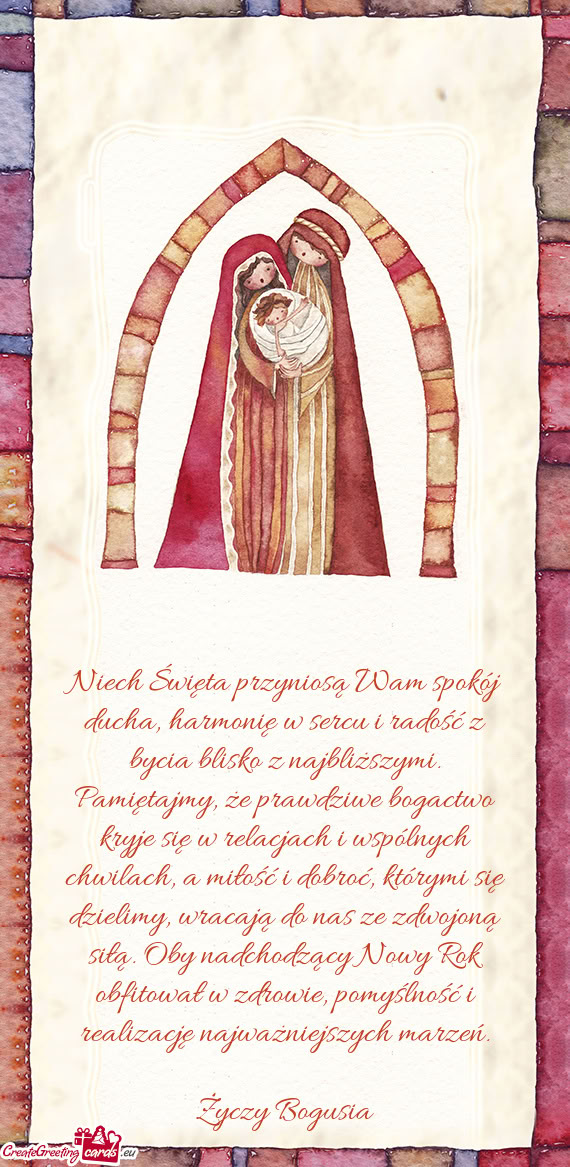 Niech Święta przyniosą Wam spokój
ducha, harmonię w sercu i radość z
bycia blisko z najbliższymi.
Pamiętajmy, że prawdziwe bogactwo
kryje się w relacjach i wspólnych
chwilach, a miłość i dobroć, którymi się
dzielimy, wracają do nas ze zdwojoną
siłą. Oby nadchodzący Nowy Rok
obfitował w zdrowie, pomyślność i
realizację najważniejszych marzeń.
Życzy Bogusia
CreateGreetingcards.eu